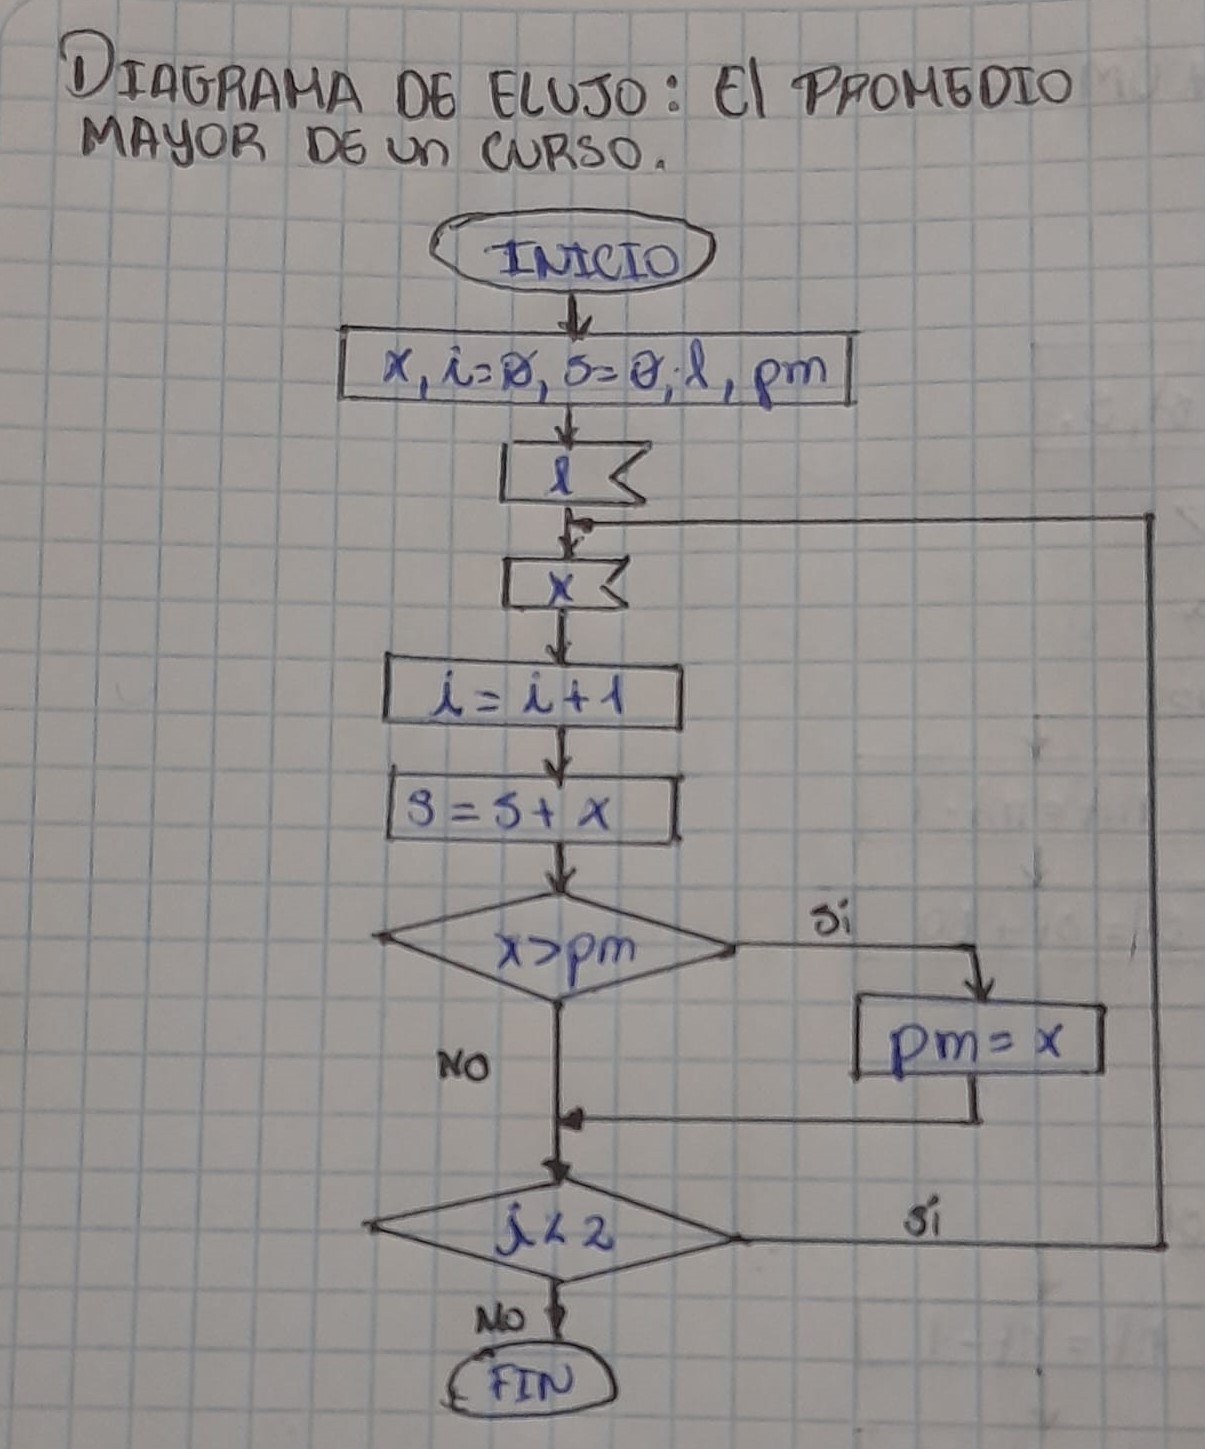 DIAGRAMA DE FLUJO: El PROMEDIO
MAYOR DE un CURSO.
INICIO
x, i=0, s=0, l, pm
l
x
i = i + 1
s = s + x
x>pm
Si
pm = x
NO
i < 2
Si
NO
FIN